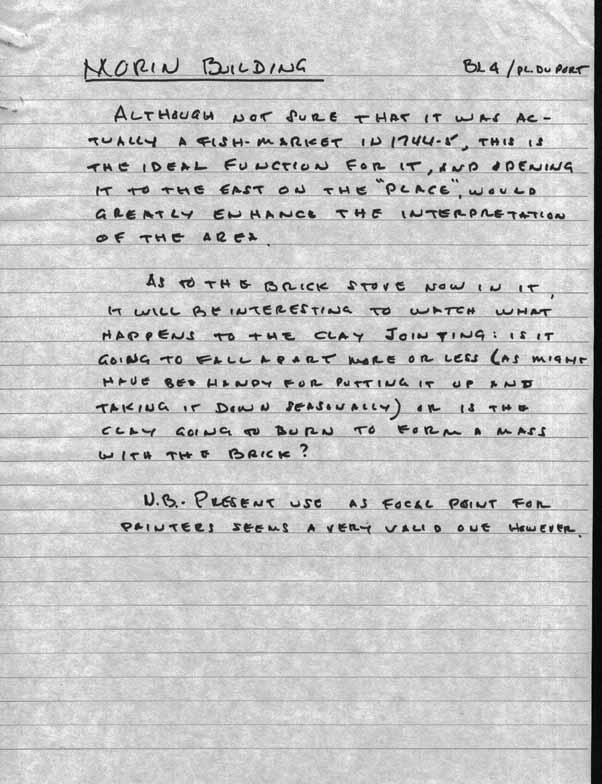 MORIN BUILDING BL4/PL. DU PORT
ALTHOUGH NOT SURE THAT IT WAS AC-
TUALLY A FISH-MARKET IN 1744-5, THIS IS
THE IDEAL FUNCTION FOR IT, AND OPENING
IT TO THE EAST ON THE "PLACE", WOULD
GREATLY ENHANCE THE INTERPRETATION
OF THE AREA.
AS TO THE BRICK STOVE NOW IN IT,
IT WILL BE INTERESTING TO WATCH WHAT
HAPPENS TO THE CLAY JOINTING: IS IT
GOING TO FALL APART MORE OR LESS (AS MIGHT
HAVE BEE HANDY FOR PUTTING IT UP AND
TAKING IT DOWN SEASONALLY) OR IS THE
CLAY GOING TO BURN TO FORM A MASS
WITH THE BRICK?
N.B.- PRESENT USE AS FOCAL POINT FOR
PAINTERS SEEMS A VERY VALID ONE HOWEVER.